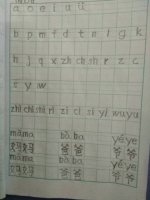 a o e i u ü
b p m f d t n l g k
h j q x zh ch sh r z c
s y w
zhi chi shi ri zi ci si yi wu yu
māma bàba yéye
妈妈 爸爸 爷爷
māma bàba yéye
妈妈 爸爸 爷爷